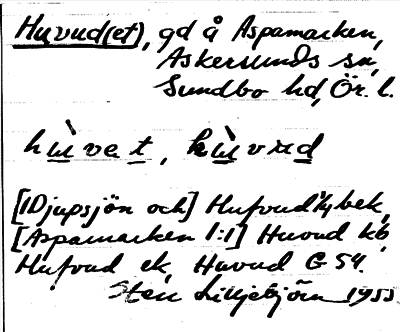 Huvud(et), gd å Aspamarken,
Askersunds sn,
Sundbo hd, Ör. l.
hùvet, hùvud
[1Djupsjön och] Hufvud 1/4 bek,
[Aspamarken 1:1] Huvud kb,
Hufvud ek, Huvud G 54.
Sten Lilljebjörn 1955